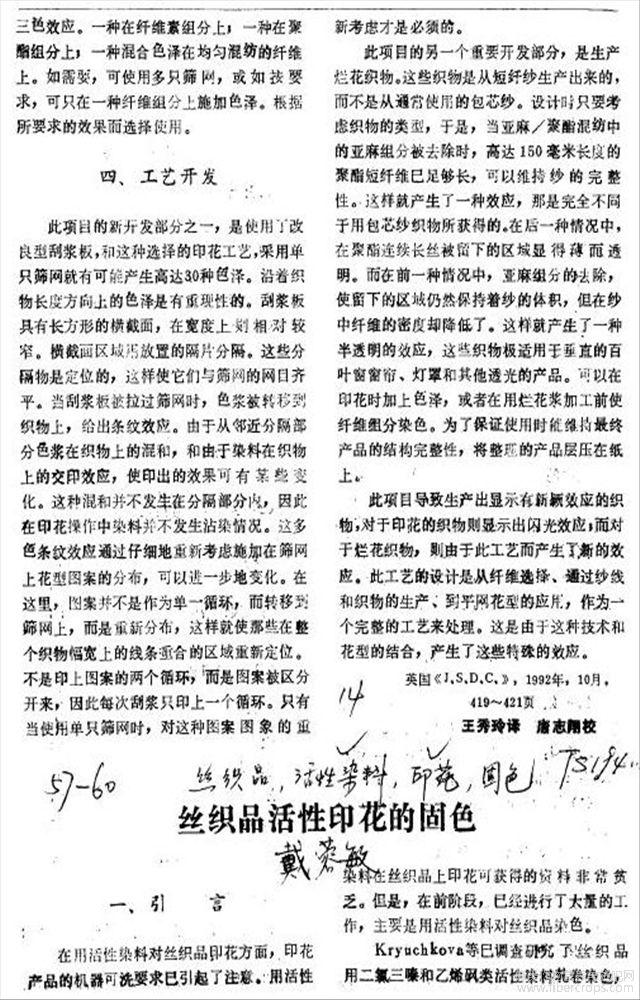 三色效应。一种在纤维素组分上，一种在聚
酯组分上，一种混合色泽在均匀混纺的纤维
上。如需要，可使用多只筛网，或如按要
求，可只在一种纤维组分上施加色泽。根据
所要求的效果而选择使用。
四、工艺开发
此项目的新开发部分之一，是使用了改
良型刮浆板，和这种选择的印花工艺，采用单
只筛网就有可能产生高达30种色泽。沿着织
物长度方向上的色泽是有重现性的。刮浆板
具有长方形的横截面，在宽度上则相对较
窄。横截面区域用放置的隔片分隔。这些分
隔物是定位的，这样使它们与筛网的网目齐
平。当刮浆板被拉过筛网时，色浆被转移到
织物上，给出条纹效应。由于从邻近分隔部
分色浆在织物上的混和，和由于染料在织物
上的交印效应，使印出的效果可有某些变
化。这种混和并不发生在分隔部分内，因此
在印花操作中染料并不发生沾染情况。这多
色条纹效应通过仔细地重新考虑施加在筛网
上花型图案的分布，可以进一步地变化。在
这里，图案并不是作为单一循环，而转移到
筛网上，而是重新分布，这样就使那些在整
个织物幅宽上的线条重合的区域重新定位。
不是印上图案的两个循环，而是图案被区分
开来，因此每次刮浆只印上一个循环。只有
当使用单只筛网时，对这种图案图象的重
新考虑才是必须的。
此项目的另一个重要开发部分，是生产
烂花织物。这些织物是从短纤纱生产出来的，
而不是从通常使用的包芯纱。设计时只要考
虑织物的类型，于是，当亚麻／聚酯混纺中
的亚麻组分被去除时，高达150毫米长度的
聚酯短纤维已足够长，可以维持纱的完整
性。这样就产生了一种效应，那是完全不同
于用包芯纱织物所获得的。在后一种情况中，
在聚酯连续长丝被留下的区域显得薄而透
明。而在前一种情况中，亚麻组分的去除，
使留下的区域仍然保持着纱的体积，但在纱
中纤维的密度却降低了。这样就产生了一种
半透明的效应，这些织物极适用于垂直的百
叶窗窗帘、灯罩和其他透光的产品。可以在
印花时加上色泽，或者在用烂花浆加工前使
纤维组分染色。为了保证使用时能维持最终
产品的结构完整性，将整理的产品层压在纸
上。
此项目导致生产出显示有新颖效应的织
物，对于印花的织物则显示出闪光效应，而对
于烂花织物，则由于此工艺而产生了新的效
应。此工艺的设计是从纤维选择、通过纱线
和织物的生产、到平网花型的应用，作为一
个完整的工艺来处理。这是由于这种技术和
花型的结合，产生了这些特殊的效应。
英国《J.S.D.C.》，1992年，10月，
419～421页
王秀玲译 唐志翔校
14
57-60 丝织品，活性染料，印花，固色 TS194
丝织品活性印花的固色
戴蓉敏
一、引 言
在用活性染料对丝织品印花方面，印花
产品的机器可洗要求已引起了注意。用活性
染料在丝织品上印花可获得的资料非常贫
乏。但是，在前阶段，已经进行了大量的工
作，主要是用活性染料对丝织品染色。
Kryuchkova等已调查研究了丝织品
用二氯三嗪和乙烯砜类活性染料轧卷染色，
www.libercrops.com